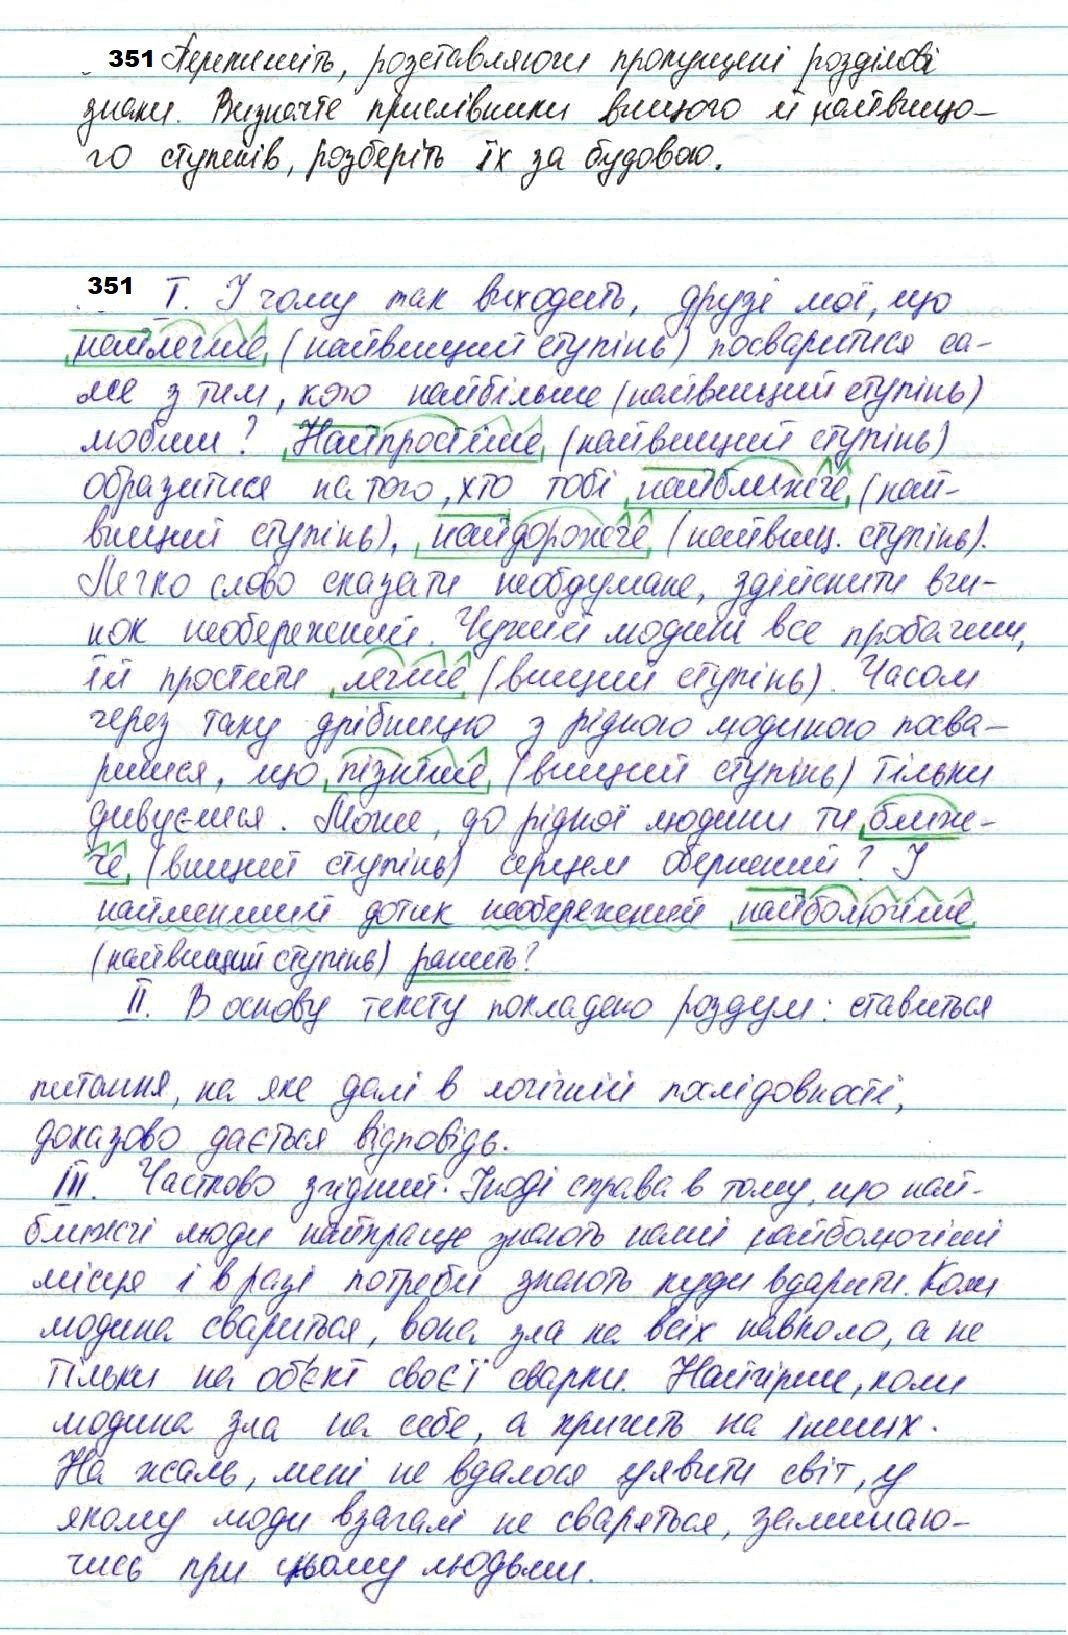 351 Перепишіть, розставляючи пропущені розділові
знаки. Визначте прислівники вищого й найвищо-
го ступенів, розберіть їх за будовою.
351 I. І чому так виходить, друзі мої, що
найлегше (найвищий ступінь) посваритися са-
ме з тим, кого найбільше (найвищий ступінь)
любиш? Найпростіше (найвищий ступінь)
образитися на того, хто тобі найближче (най-
вищий ступінь), найдорожче (найвищ. ступінь).
Легко слово сказати необдумане, здійснити вчи-
нок необережний. Чужій людині все пробачиш,
їй простити легше (вищий ступінь). Часом
через таку дрібницю з рідною людиною посва-
ришся, що пізніше (вищий ступінь) тільки
дивуєшся. Може, до рідної людини ти ближ-
че (вищий ступінь) серцем обернений? І
найменший дотик необережний найболючіше
(найвищий ступінь) ранить?
II. В основу тексту покладено роздум: ставиться
питання, на яке далі в логічній послідовності,
доказово дається відповідь.
III. Частково згідний. Іноді справа в тому, що най-
ближчі люди найкраще знають наші найболючіші
місця і в разі потреби знають куди вдарити. Коли
людина свариться, вона зла на всіх навколо, а не
тільки на об'єкт своєї сварки. Найгірше, коли
людина зла на себе, а кричить на інших.
На жаль, мені не вдалося уявити світ, у
якому люди взагалі не сваряться, залишаю-
чись при цьому людьми.